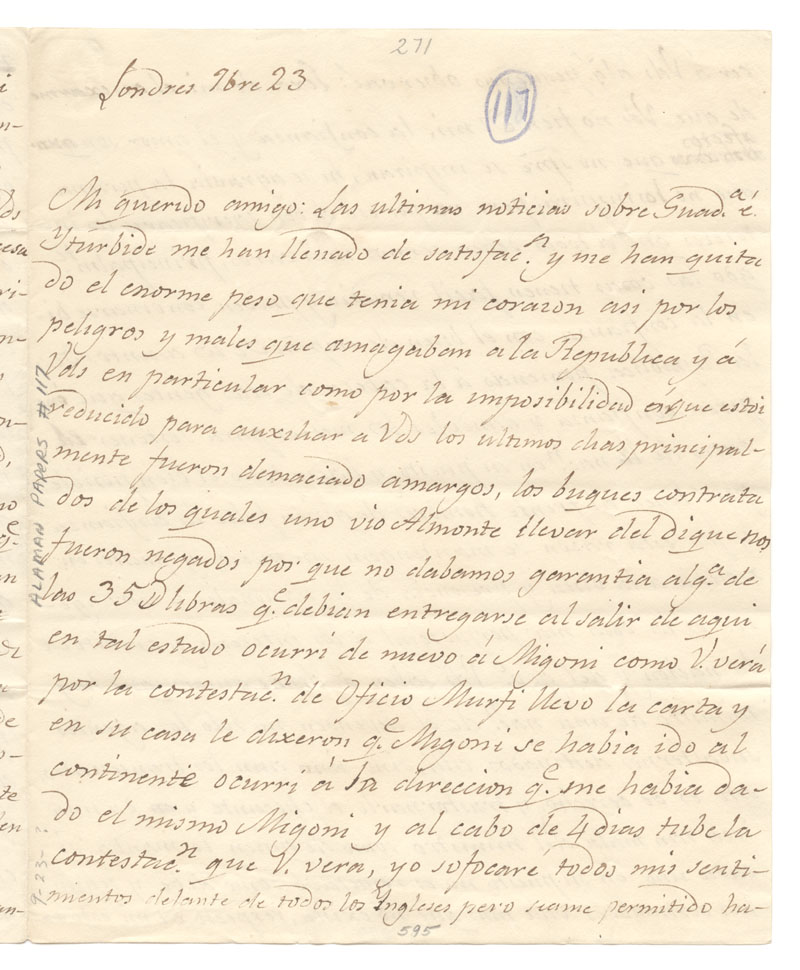 271
Londres 9bre 23
117
Mi querido amigo: Las ultimas noticias sobre Guad.a é
Yturbide me han llenado de satisfac.n y me han quita
do el enorme peso que tenia mi corazon asi por los
peligros y males que amagaban a la Republica y á
Vds en particular como por la imposibilidad enque estoi
reducido para auxiliar a Vds los ultimos dias principal-
mente fueron demaciado amargos, los buques contrata
dos de los quales uno vio Almonte llevar del dique nos
fueron negados por que no dabamos garantia alg.a de
las 35D libras q.e debian entregarse al salir de aqui
en tal estado ocurri de nuevo á Migoni como V. verá
por la contestac.n de Oficio Murfi llevo la carta y
en su casa le dixeron q.e Migoni se habia ido al
continente ocurri á la direccion q.e me habia da-
do el mismo Migoni y al cabo de 4 dias tube la
contestac.n que V. vera, yo sofocaré todos mis senti-
mientos delante de todos los Yngleses pero seame permitido ha-
595
ALAMAN PAPERS # 117
9-23-?